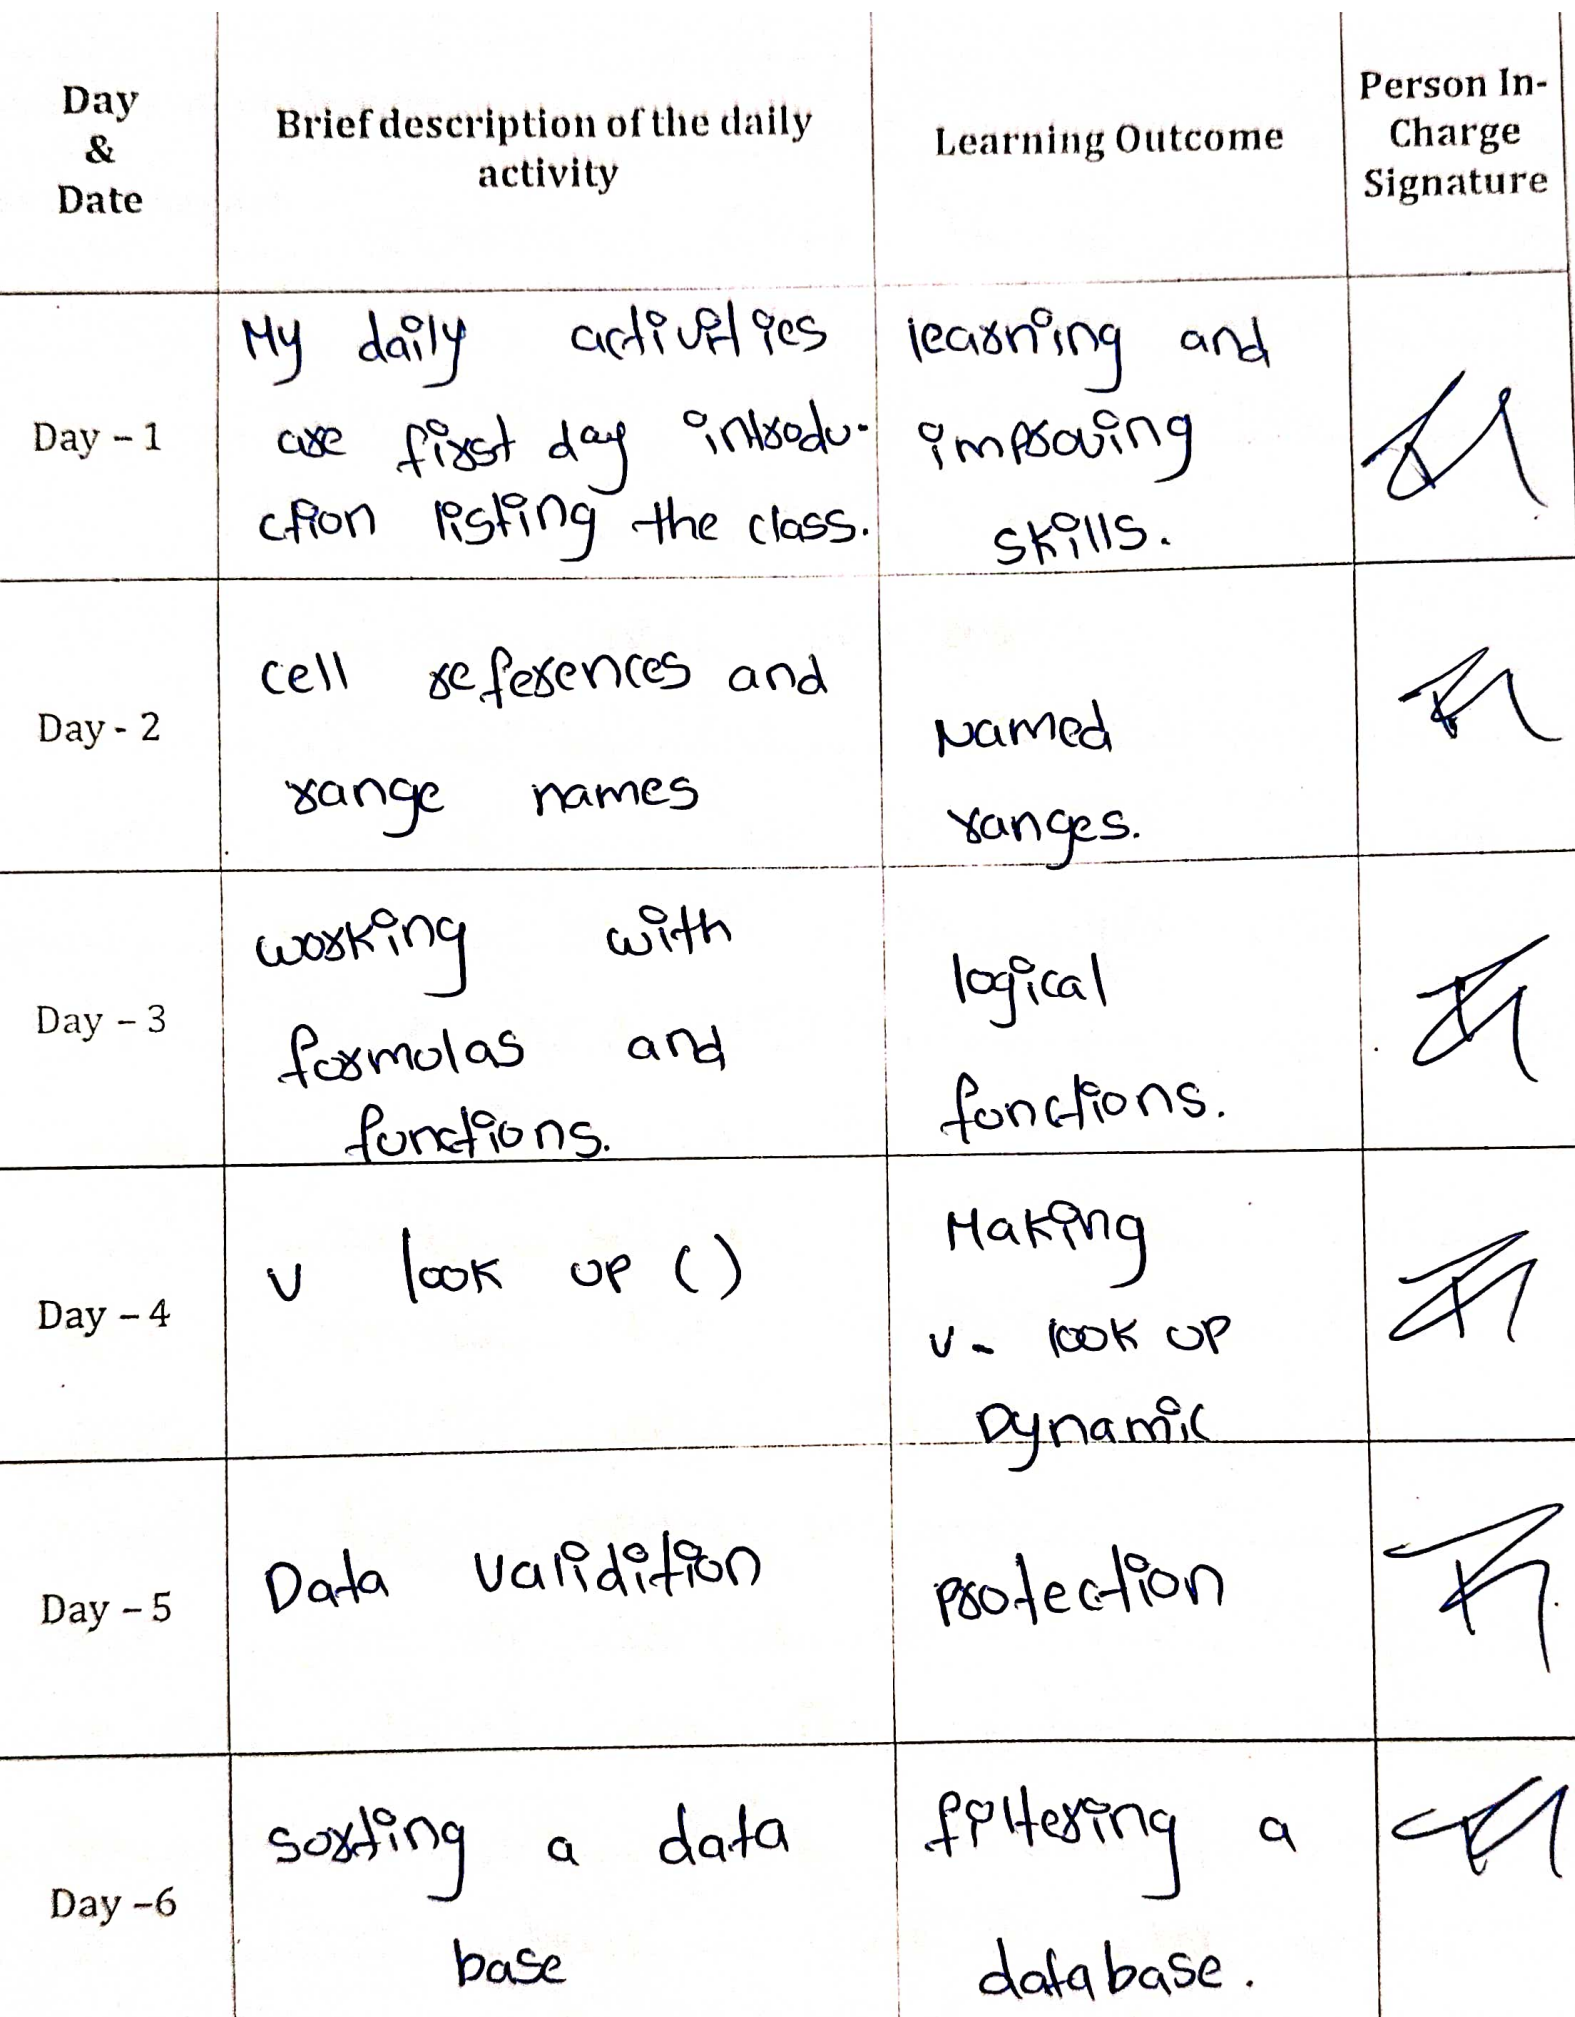 Day
&
Date
Brief description of the daily
activity
Learning Outcome
Person In-
Charge
Signature
Day – 1
My daily activities
are first day introdu-
ction listing the class.
learning and
improving
skills.
Day - 2
cell references and
range names
Named
ranges.
Day – 3
working with
formulas and
functions.
logical
functions.
Day – 4
v look up ()
Making
v- look up
Dynamic
Day – 5
Data validition
protection
Day –6
sorting a data
base
filtering a
database.